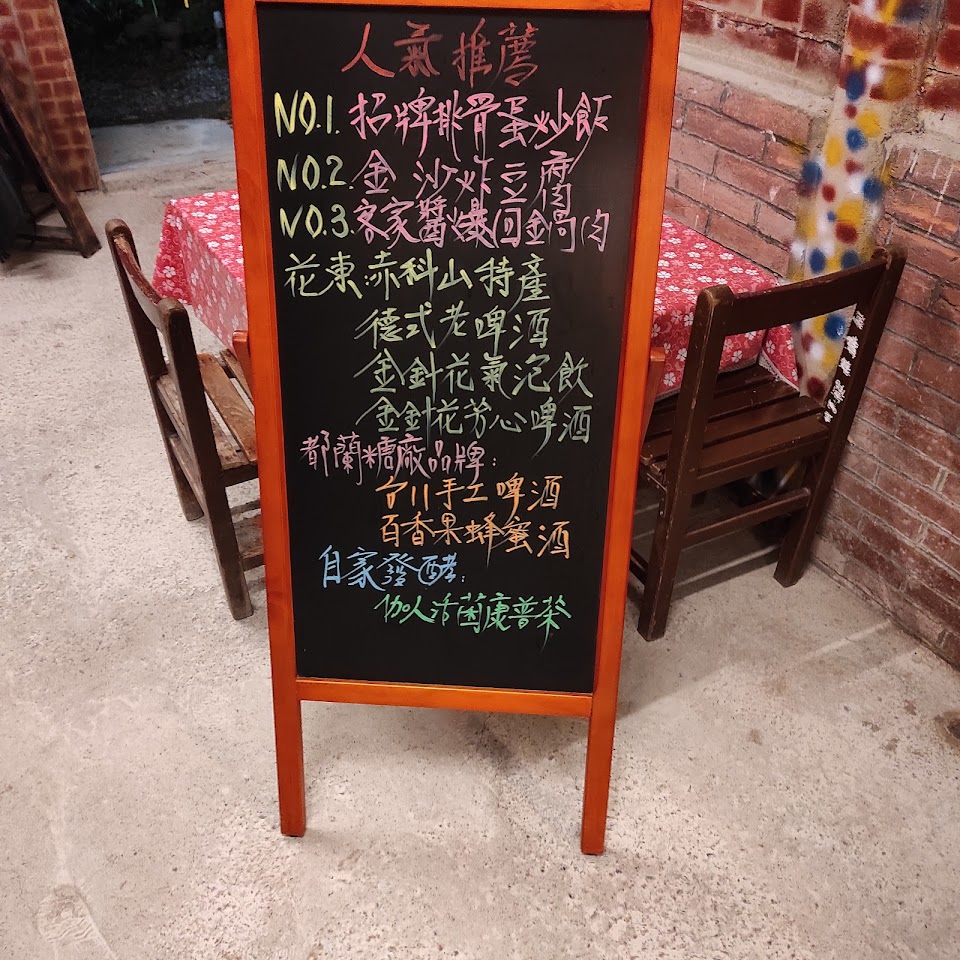 人氣推薦
NO.1. 招牌排骨蛋炒飯
NO.2. 金沙炸豆腐
NO.3. 客家醬爆回鍋肉
花東赤科山特產
德式老啤酒
金針花氣泡飲
金針花芳心啤酒
都蘭糖廠品牌:
台11手工啤酒
百香果蜂蜜酒
自家發酵:
伽人活菌康普茶